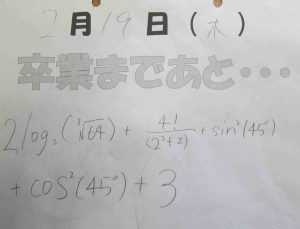 2月19日(木)
卒業まであと・・・
2log₂(³√64) + 4!/(2²+2) + sin²(45°)
+ cos²(45°) + 3